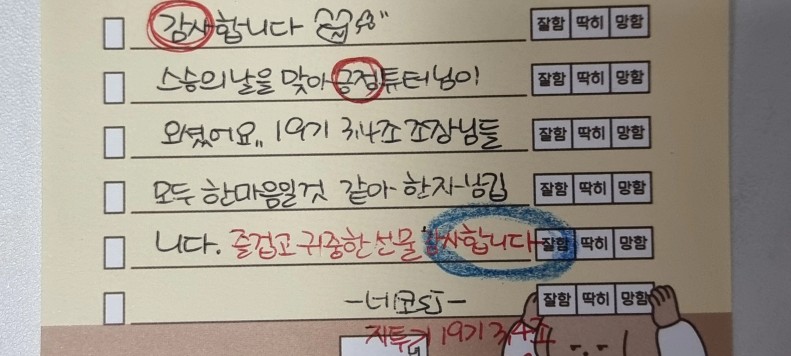 감사합니다 잘함 딱히 망함
스승의날을 맞아 긍정튜터님이 잘함 딱히 망함
오셨어요,, 19기 3,4조 조장님들 잘함 딱히 망함
모두 한마음일것 같아 한자남깁 잘함 딱히 망함
니다. 즐겁고 귀중한 선물 감사합니다 잘함 딱히 망함
-네코SJ- 잘함 딱히 망함
19기 3,4조